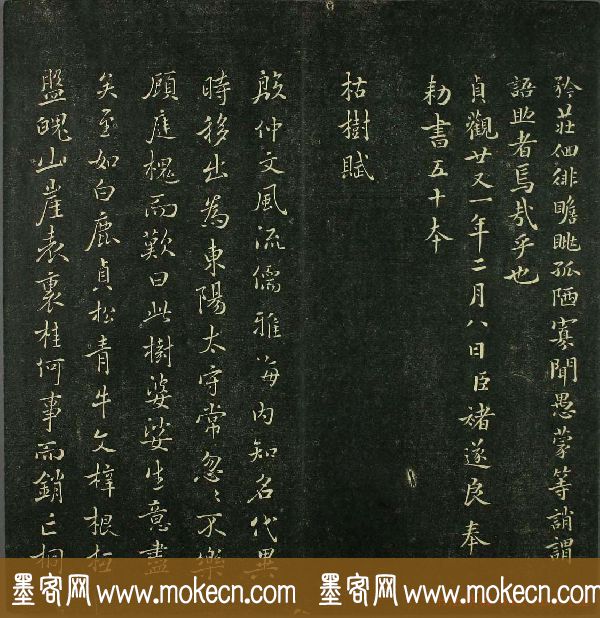 矜莊佪徘瞻眺孤陋寡聞愚蒙等誚謂
語助者焉哉乎也
貞觀廿又一年二月八日臣褚遂良奉
勑書五十本
枯樹賦
殷仲文風流儒雅海內知名代異
時移出為東陽太守常忽〻不樂
顧庭槐而歎曰此樹婆娑生意盡
矣至如白鹿貞松青牛文梓根柢
盤魄山崖表裏桂何事而銷亡桐
墨客网 www.mokecn.com 墨客网 www.mokecn.com